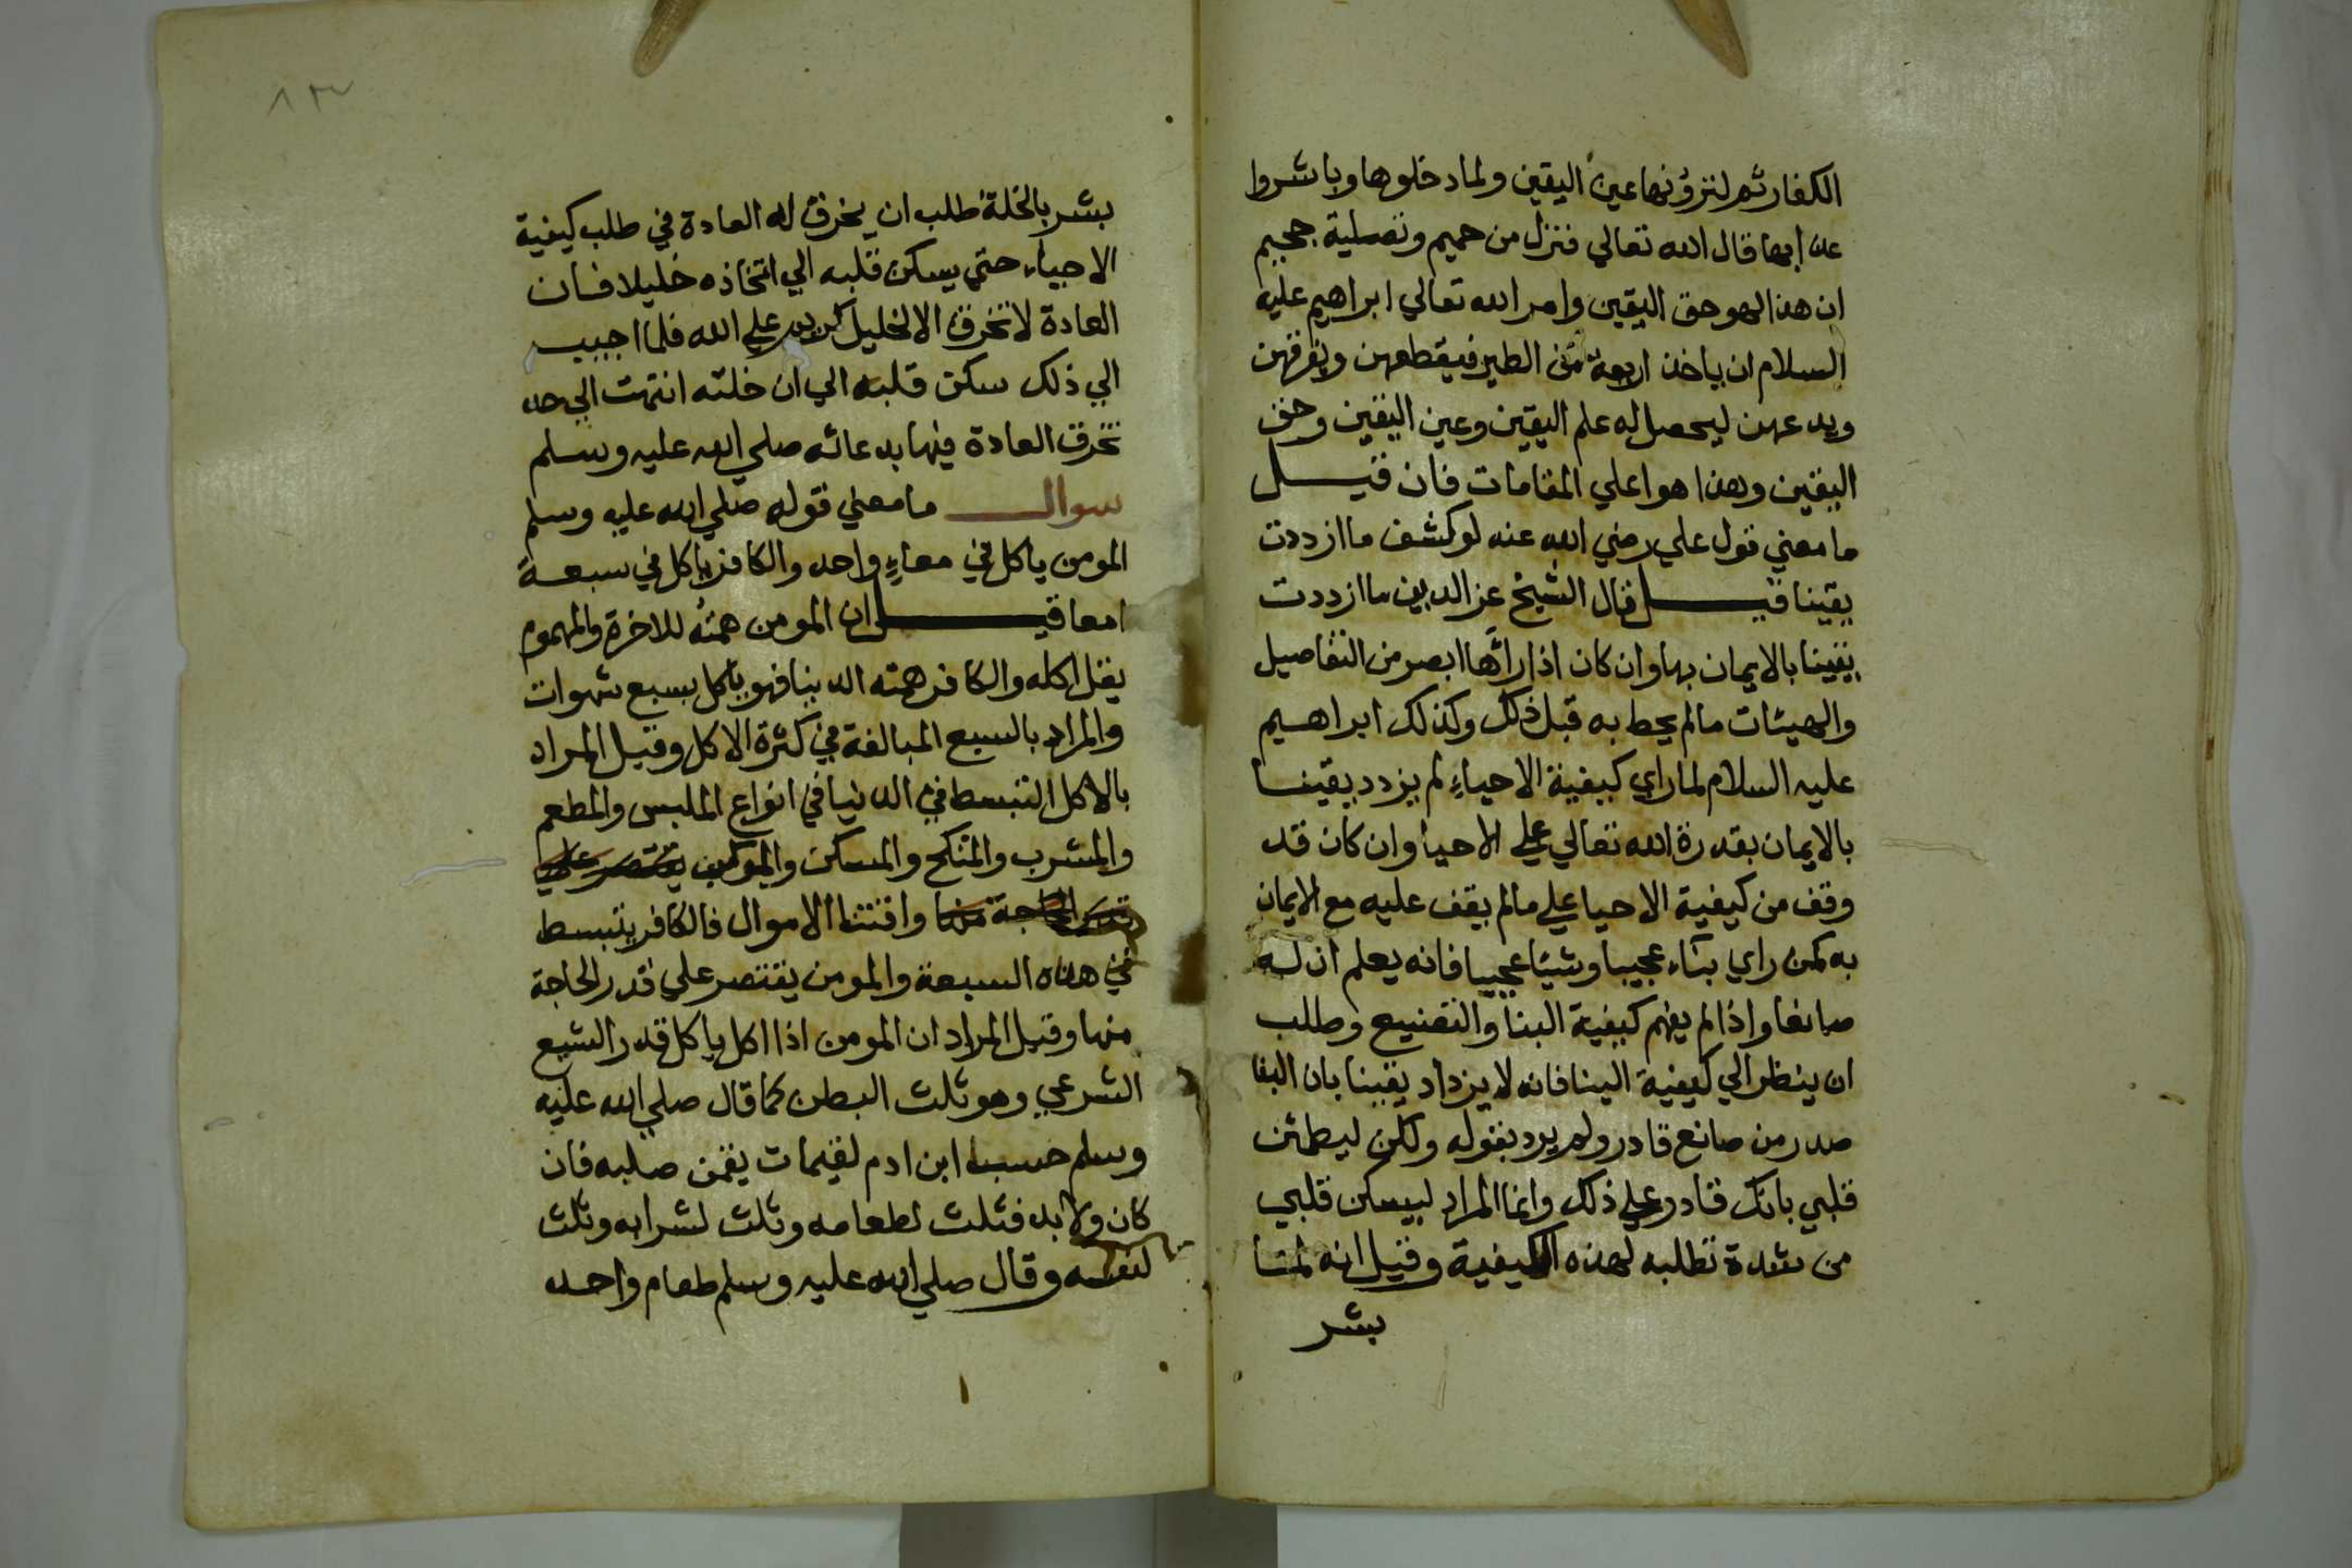 الكفار ثم لترونها عين اليقين ولما دخلوها وباشروا
عذابها قال الله تعالي فنزل من حميم وتصلية جحيم
ان هذا لهو حق اليقين وامر الله تعالي ابراهيم عليه
السلام ان ياخذ اربعة من الطير فيقطعهن ويفرقهن
ويدعهن ليحصل له علم اليقين وعين اليقين وحق
اليقين وهذا هو اعلي المقامات فان قيل
ما معني قول علي رضي الله عنه لو كشف ما ازددت
يقينا قيل قال الشيخ عز الدين ما ازددت
يقينا بالايمان بها وان كان اذا رآها ابصر من التفاصيل
والهيئات مالم يحط به قبل ذلك وكذلك ابراهيم
عليه السلام لما راي كيفية الاحياء لم يزدد يقينا
بالايمان بقدرة الله تعالي علي الاحيا وان كان قد
وقف من كيفية الاحيا علي مالم يقف عليه مع الايمان
به كمن راي بناء عجيبا وشيئا عجيبا فانه يعلم ان له
صانعا واذا لم يفهم كيفية البنا والتصنيع وطلب
ان ينظر الي كيفية البنا فانه لا يزداد يقينا بان البنا
صدر من صانع قادر ولم يرد بقوله ولكن ليطمئن
قلبي بانك قادر علي ذلك وانما المراد ليسكن قلبي
من شدة تطلبه لهذه الكيفية وقيل انه لما
بشر
٨٣
بشر بالخلة طلب ان يخرق له العادة في طلب كيفية
الاحياء حتي يسكن قلبه الي اتخاذه خليلا فان
العادة لا تخرق الا لخليل كريم علي الله فلما اجيب
الي ذلك سكن قلبه الي ان خلته انتهت الي حد
تخرق العادة فيها بدعائه صلي الله عليه وسلم
سوال ما معني قوله صلي الله عليه وسلم
المومن ياكل في معاء واحد والكافر ياكل في سبعة
امعا قيل ان المومن همته للاخرة والمهموم
يقل اكله والكافر همته الدنيا فهو ياكل بسبع شهوات
والمراد بالسبع المبالغة في كثرة الاكل وقيل المراد
بالاكل التبسط في الدنيا في انواع الملبس والمطعم
والمشرب والمنكح والمسكن والمركب يقتصر علي
قدر الحاجة منها واقتنا الاموال فالكافر يتبسط
في هذه السبعة والمومن يقتصر علي قدر الحاجة
منها وقيل المراد ان المومن اذا اكل ياكل قدر الشبع
الشرعي وهو ثلث البطن كما قال صلي الله عليه
وسلم حسب ابن ادم لقيمات يقمن صلبه فان
كان ولا بد فثلث لطعامه وثلث لشرابه وثلث
لنفسه وقال صلي الله عليه وسلم طعام واحد